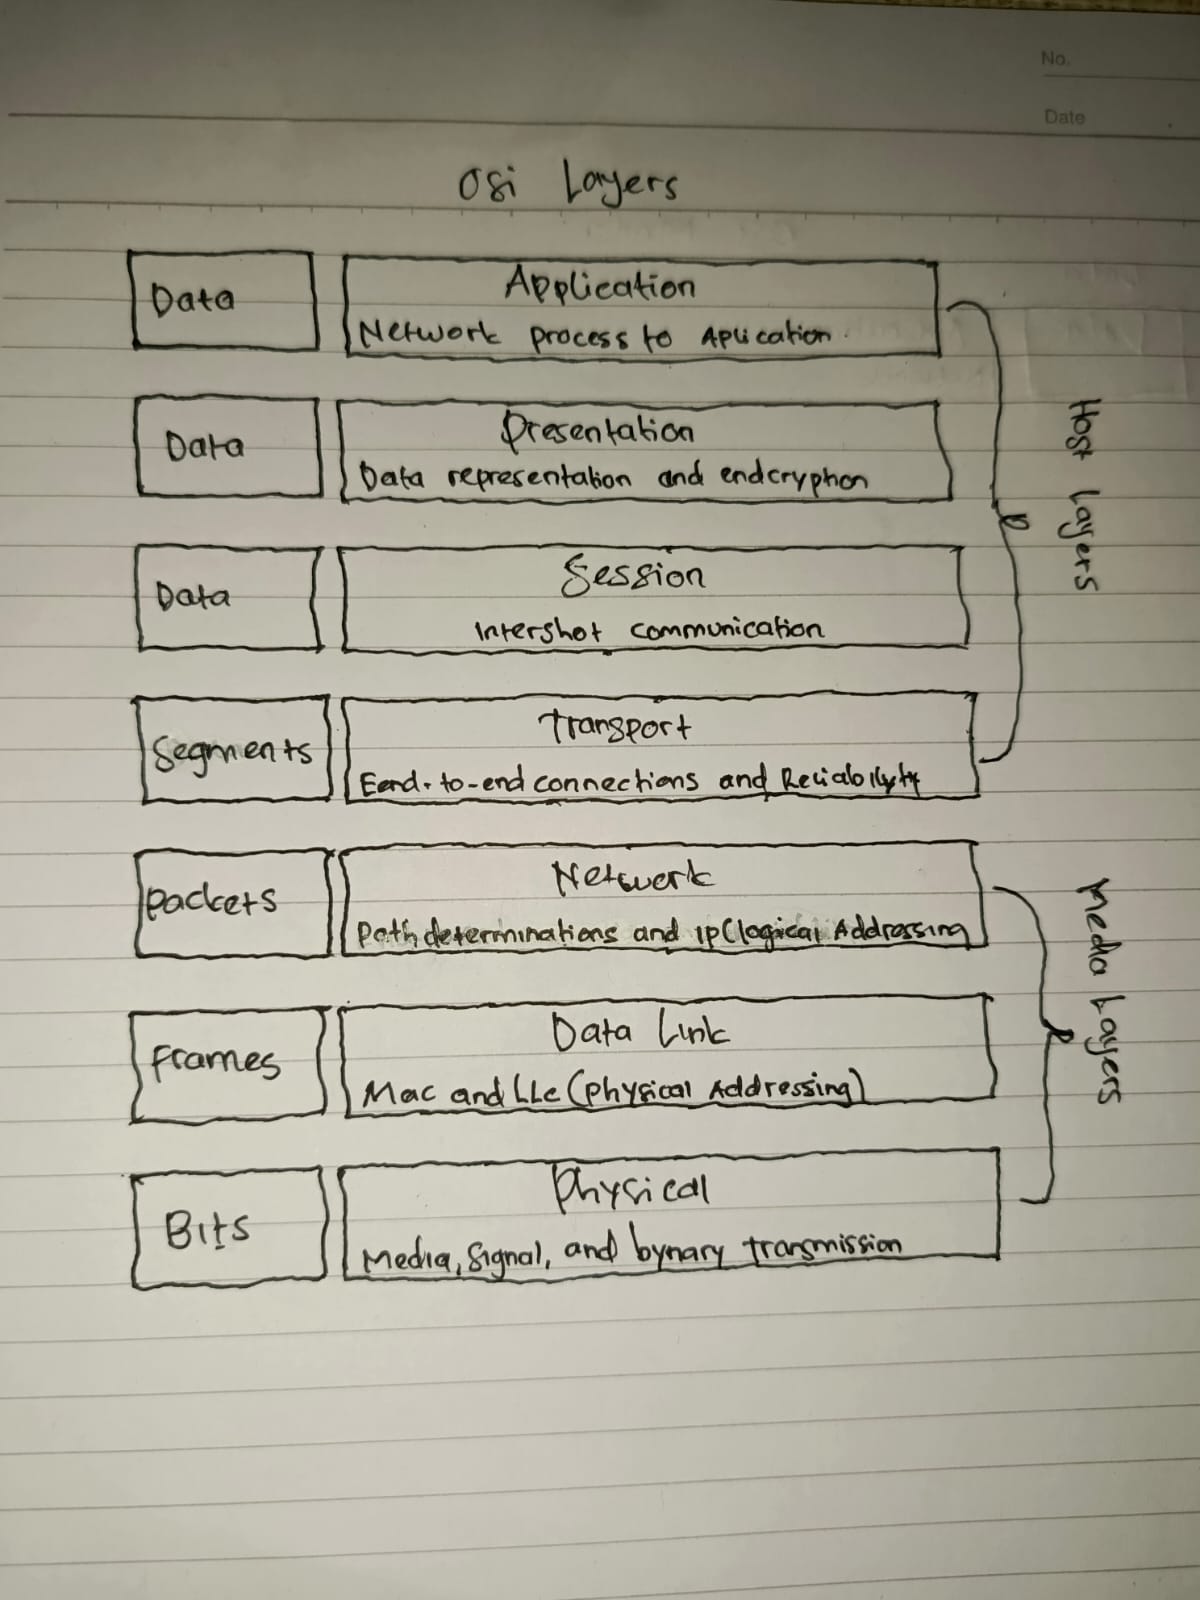 No.
Date
OSi Layers
Data
Application
Network process to Aplication
Data
Presentation
Data representation and endcryphon
Data
Session
Intershot communication
Segments
Transport
Eend-to-end connections and
Packets
Network
Path determinations and IP(logical Addressing
Frames
Data Link
Mac and LLc (physical Addressing)
Bits
Physical
Media, Signal, and bynary transmission
Host Layers
Media Layers